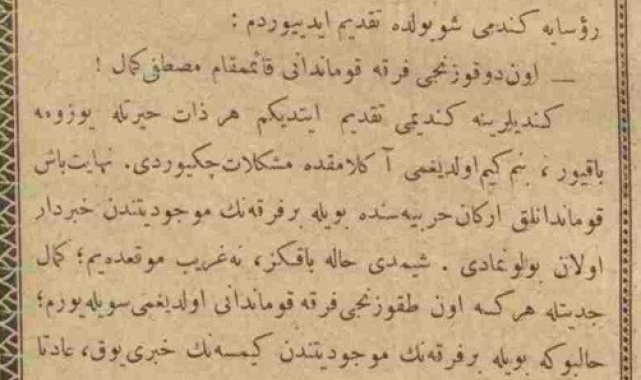 رؤسایه كندمی شو یولده تقدیم ایدییوردم :
— اون دوقوزنجی فرقه قوماندانی قائممقام مصطفی كمال !
كندیلرینه كندیمی تقدیم ایتدیكم هر ذات حیرتله یوزومه
باقیور ، بنم كیم اولدیغمی آكلامقده مشكلات چكیوردی. نهایت باش
قوماندانلق اركان حربیه سنده بویله بر فرقه نك موجودیتندن خبردار
اولان بولونمادی . شیمدی حاله باقكز ، نه غریب موقعده یم ؛ كمال
جدیتله هركسه اون طقوزنجی فرقه قوماندانی اولدیغمی سویله یورم ؛
حالبوكه بویله بر فرقه نك موجودیتندن كیمسه نك خبری یوق ، عادتا